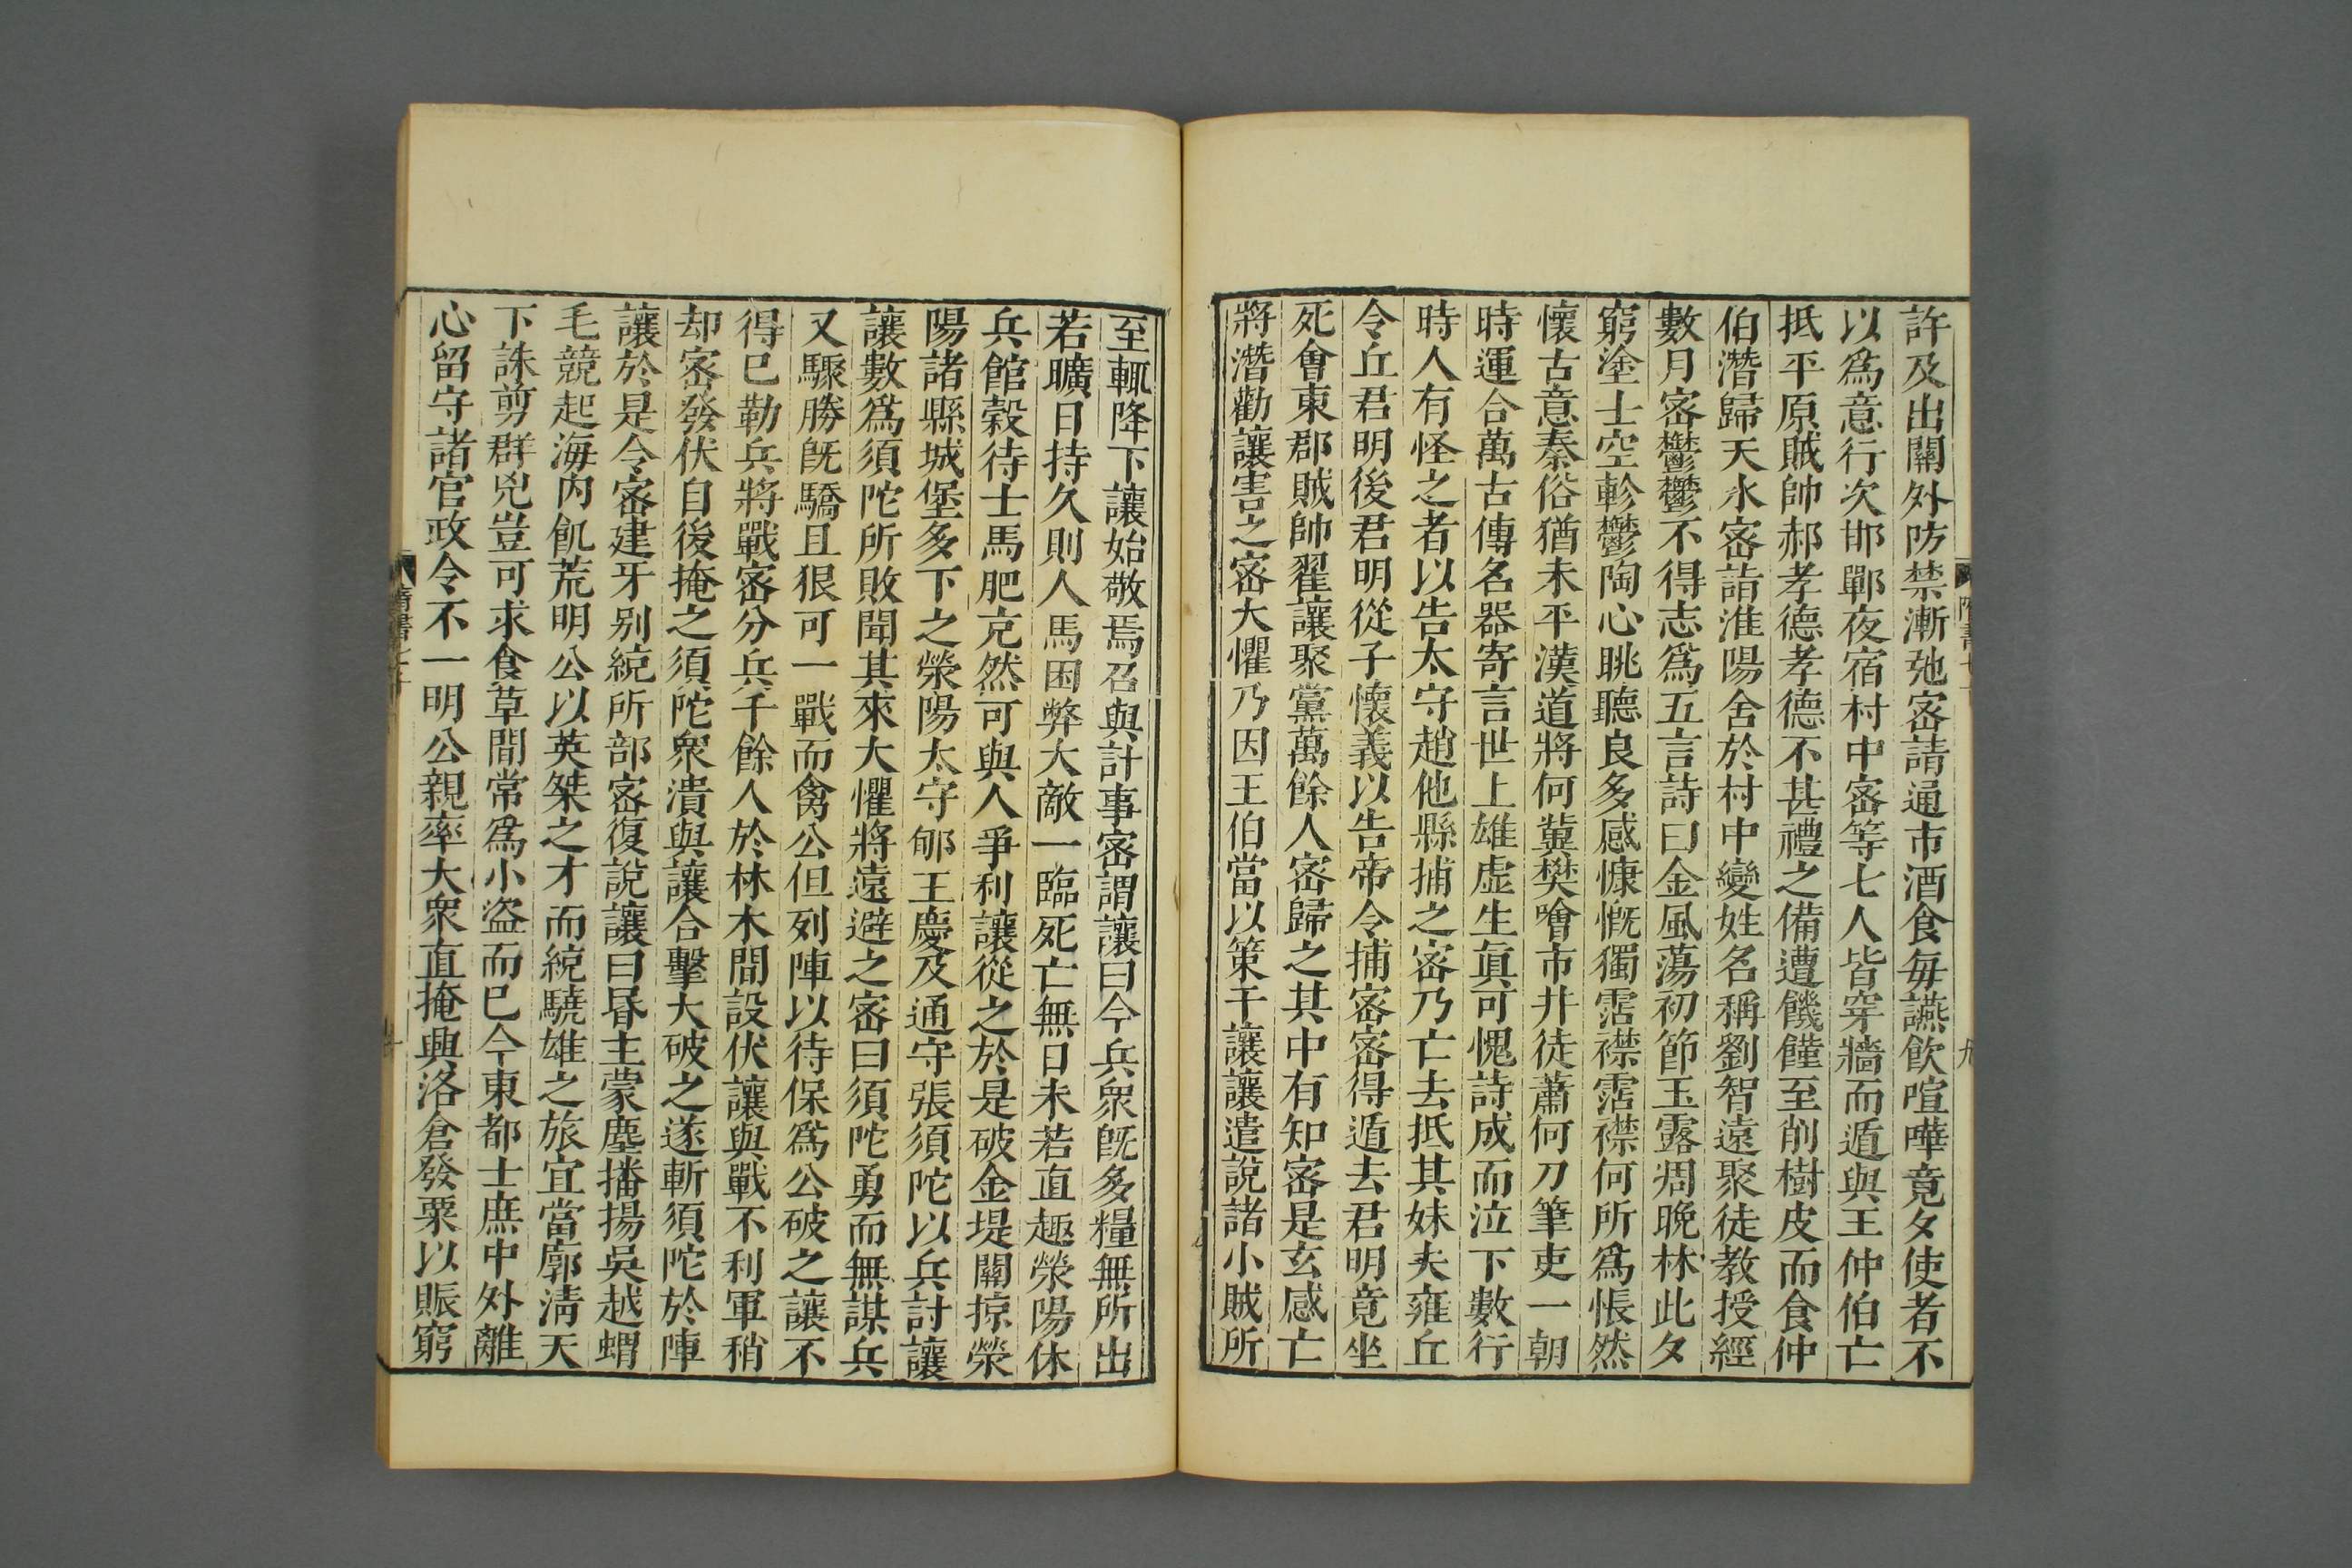 許及出關外防禁漸弛密請通市酒食每讌飲喧嘩竟夕使者不
以爲意行次邯鄲夜宿村中密等七人皆穿牆而遁與王仲伯亡
抵平原賊帥郝孝德孝德不甚禮之備遭饑饉至削樹皮而食仲
伯潛歸天水密詣淮陽舍於村中變姓名稱劉智遠聚徒教授經
數月密鬱鬱不得志爲五言詩曰金風蕩初節玉露凋晚林此夕
窮塗士空軫鬱陶心眺聽良多感慷慨獨霑襟霑襟何所爲悵然
懷古意秦俗猶未平漢道將何冀樊噲市井徒蕭何刀筆吏一朝
時運合萬古傳名器寄言世上雄虛生眞可愧詩成而泣下數行
時人有怪之者以告太守趙他縣捕之密乃亡去抵其妹夫雍丘
令丘君明後君明從子懷義以告帝令捕密密得遁去君明竟坐
死會東郡賊帥翟讓聚黨萬餘人密歸之其中有知密是玄感亡
將潛勸讓害之密大懼乃因王伯當以策干讓讓遣說諸小賊所
至輒降下讓始敬焉召與計事密謂讓曰今兵衆旣多糧無所出
若曠日持久則人馬困弊大敵一臨死亡無日未若直趣滎陽休
兵館穀待士馬肥充然可與人爭利讓從之於是破金堤關掠滎
陽諸縣城堡多下之滎陽太守郇王慶及通守張須陀以兵討讓
讓數爲須陀所敗聞其來大懼將遠避之密曰須陀勇而無謀兵
又驟勝旣驕且狠可一戰而禽公但列陣以待保爲公破之讓不
得已勒兵將戰密分兵千餘人於林木間設伏讓與戰不利軍稍
却密發伏自後掩之須陀衆潰與讓合擊大破之遂斬須陀於陣
讓於是令密建牙别統所部密復說讓曰昬主蒙塵播揚吳越蝟
毛競起海內飢荒明公以英桀之才而統驍雄之旅宜當廓淸天
下誅剪群兇豈可求食草間常爲小盜而已今東都士庶中外離
心留守諸官政令不一明公親率大衆直掩興洛倉發粟以賑窮